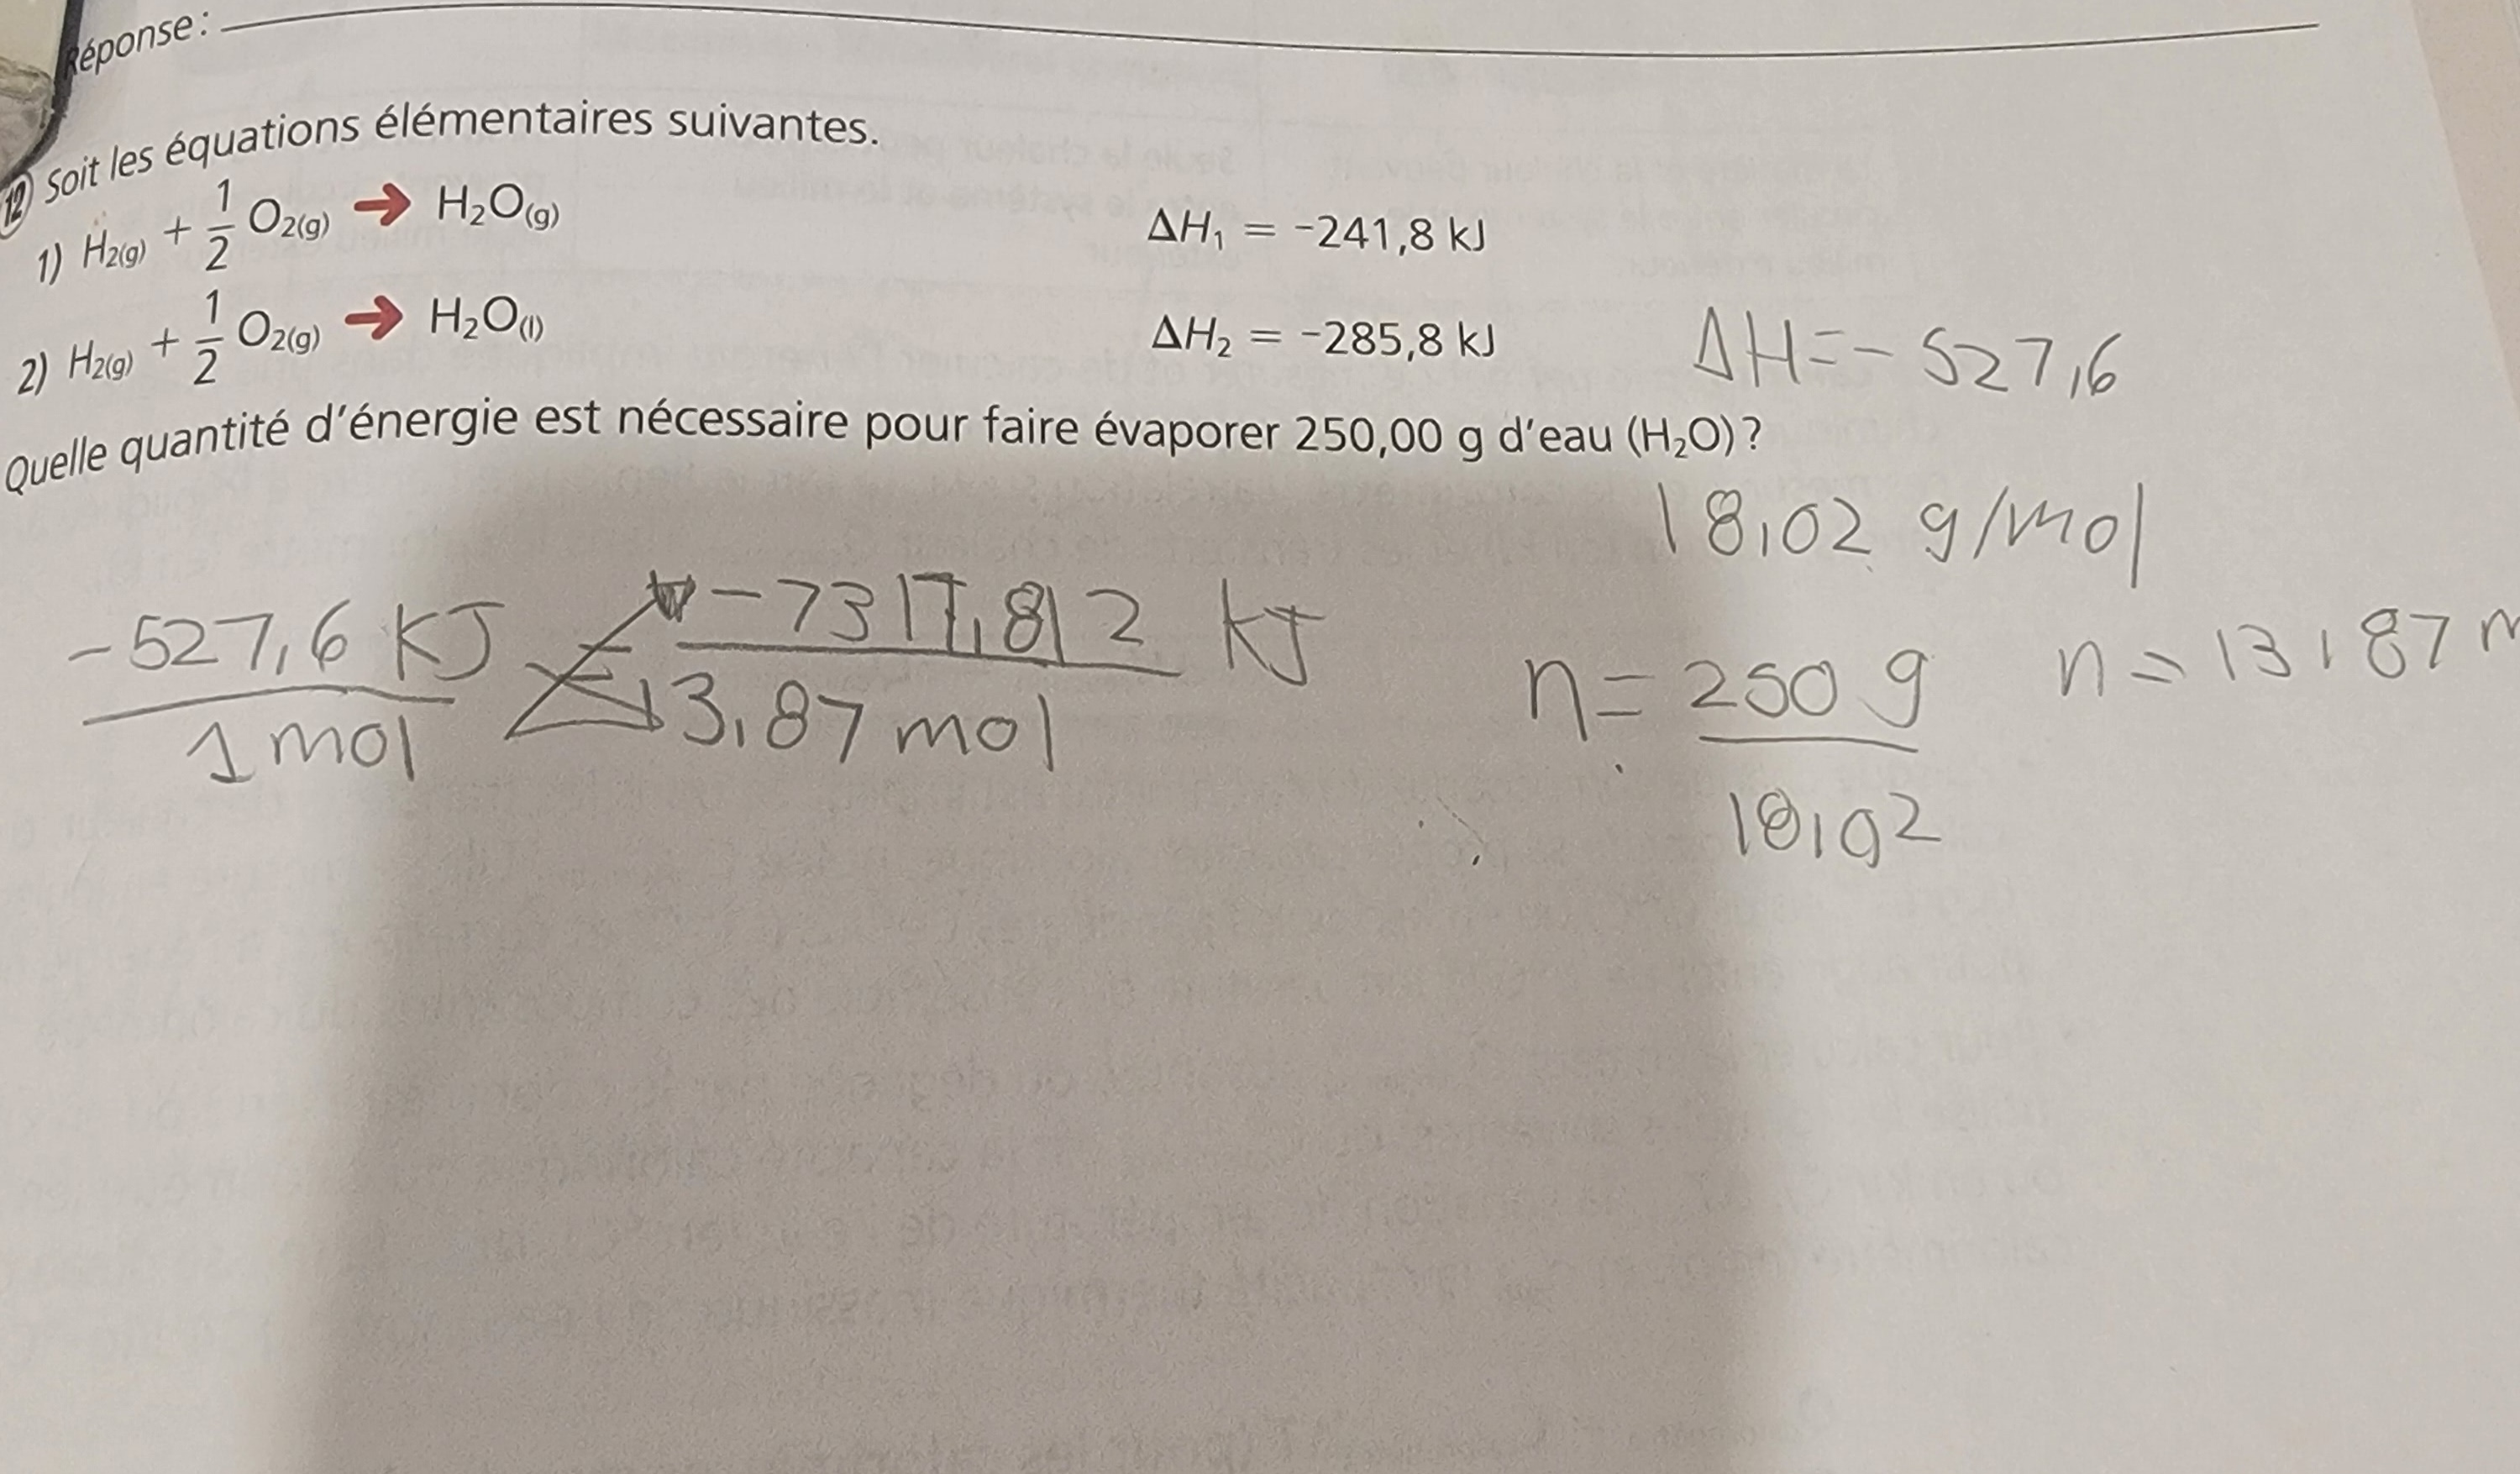 Réponse :
12 Soit les équations élémentaires suivantes.
1) H₂(g) + 1/2 O₂(g) → H₂O(g) ΔH₁ = -241,8 kJ
2) H₂(g) + 1/2 O₂(g) → H₂O(l) ΔH₂ = -285,8 kJ
ΔH = - 527,6
Quelle quantité d'énergie est nécessaire pour faire évaporer 250,00 g d'eau (H₂O) ?
18,02 g/mol
-527,6 KJ / 1 mol = -7317,812 kJ / 13,87 mol
n = 250 g / 18,02 n = 13,87 m